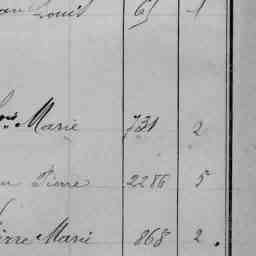 Louis 65 1
Marie 731 2
Pierre 2286 5
Marie 868 2.